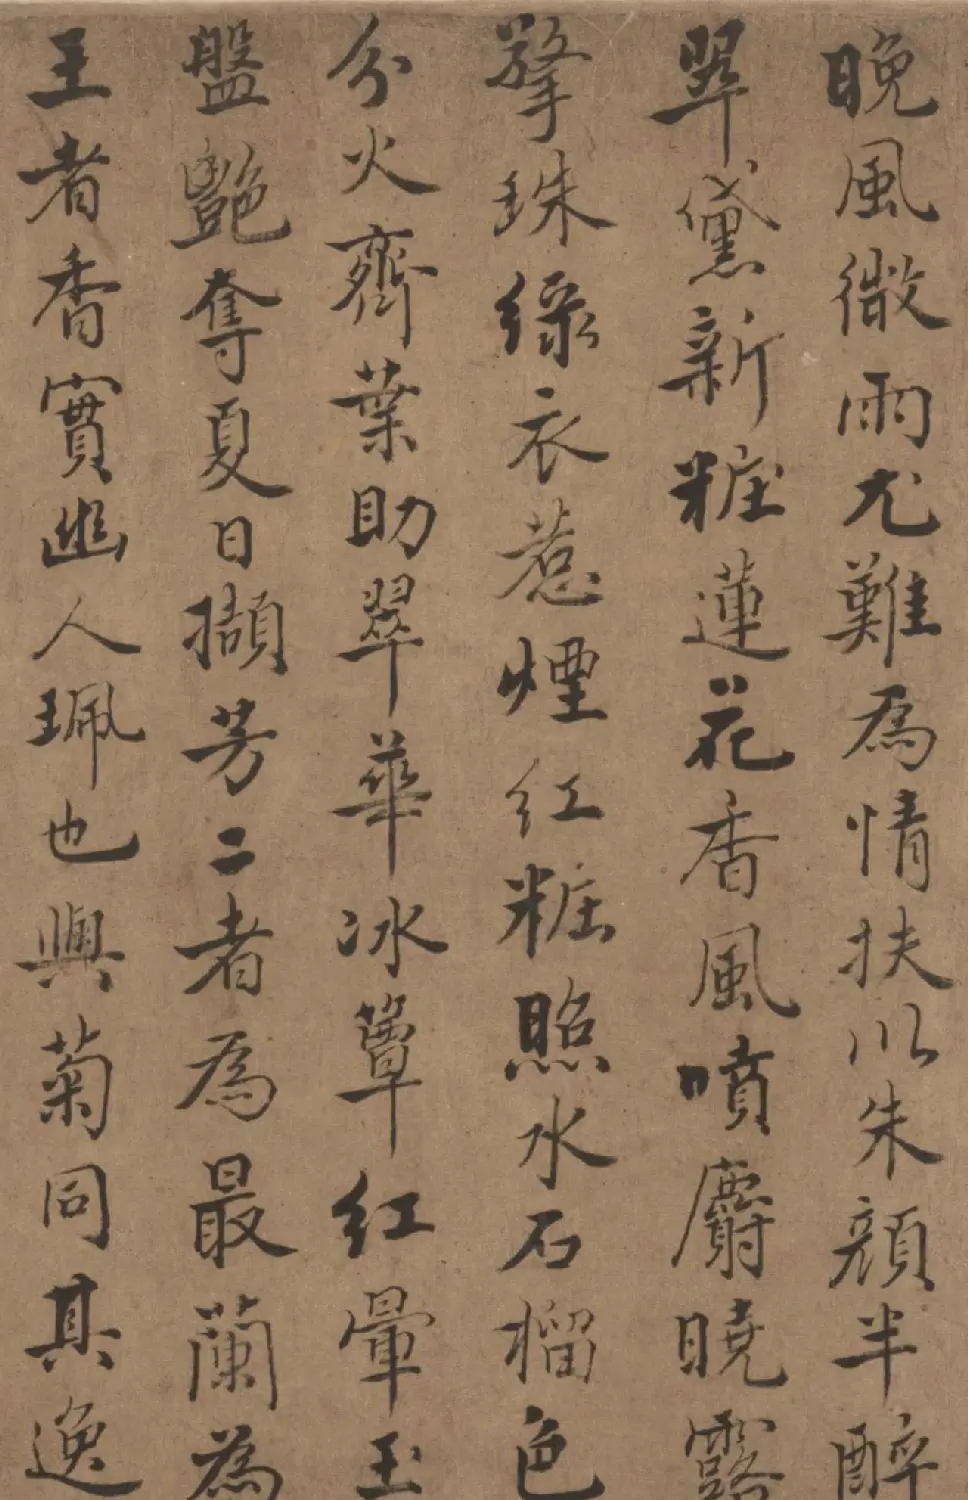 晚風微雨尤難為情扶以朱顔半醉
翠黛新粧蓮花香風噴麝曉露
擎珠緑衣惹煙紅粧照水石榴色
分火齊葉助翠華冰簟紅暈玉
盤艶奪夏日擷芳二者為最蘭為
王者香實幽人珮也與菊同其逸